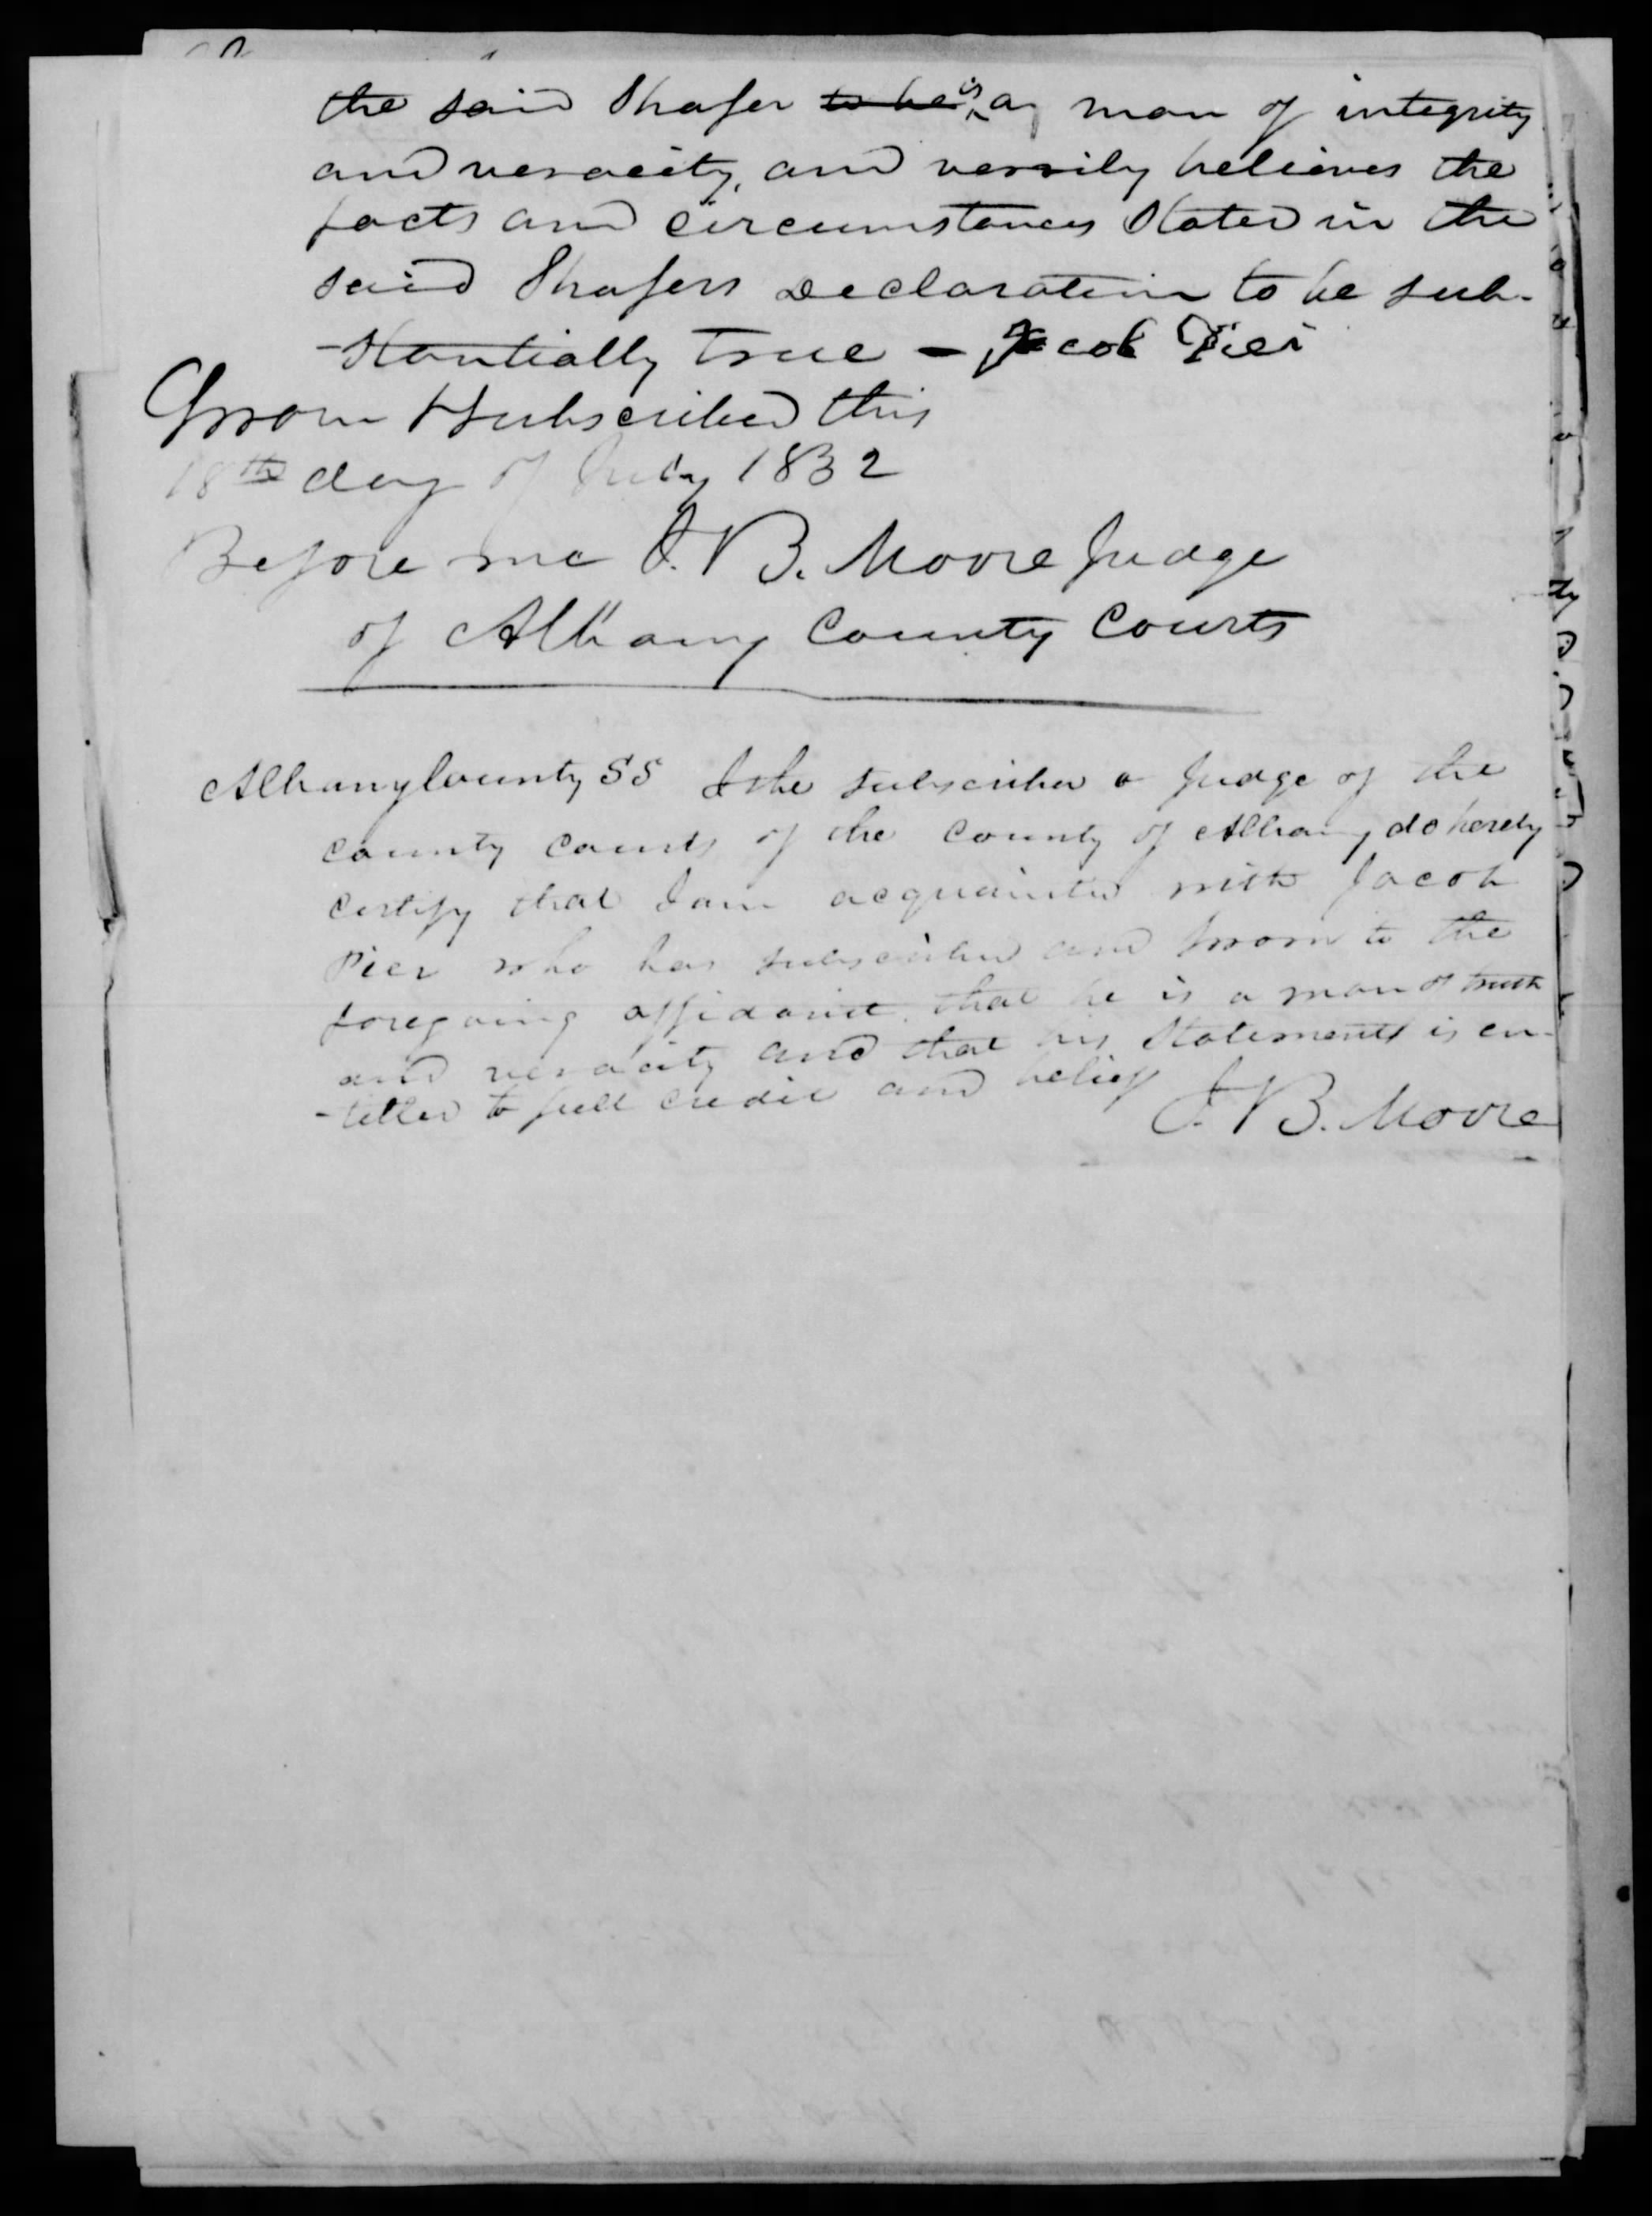 the said Shafer ~~to be~~ is a man of integrity
and veracity, and verrily believes the
facts and circumstances stated in the
said Shafers Declaration to be sub-
-stantially true - Jacob Pier
Sworn & subscribed this
18th day of July 1832
Before me J. B. Moore Judge
of Albany County Courts
Albany County SS I the subscriber a Judge of the
county courts of the county of Albany do hereby
certify that I am acquainted with Jacob
Pier who has subscribed and sworn to the
foregoing affidavit. that he is a man of truth
and veracity and that his statements is en-
-titled to full credit and belief
J. B. Moore